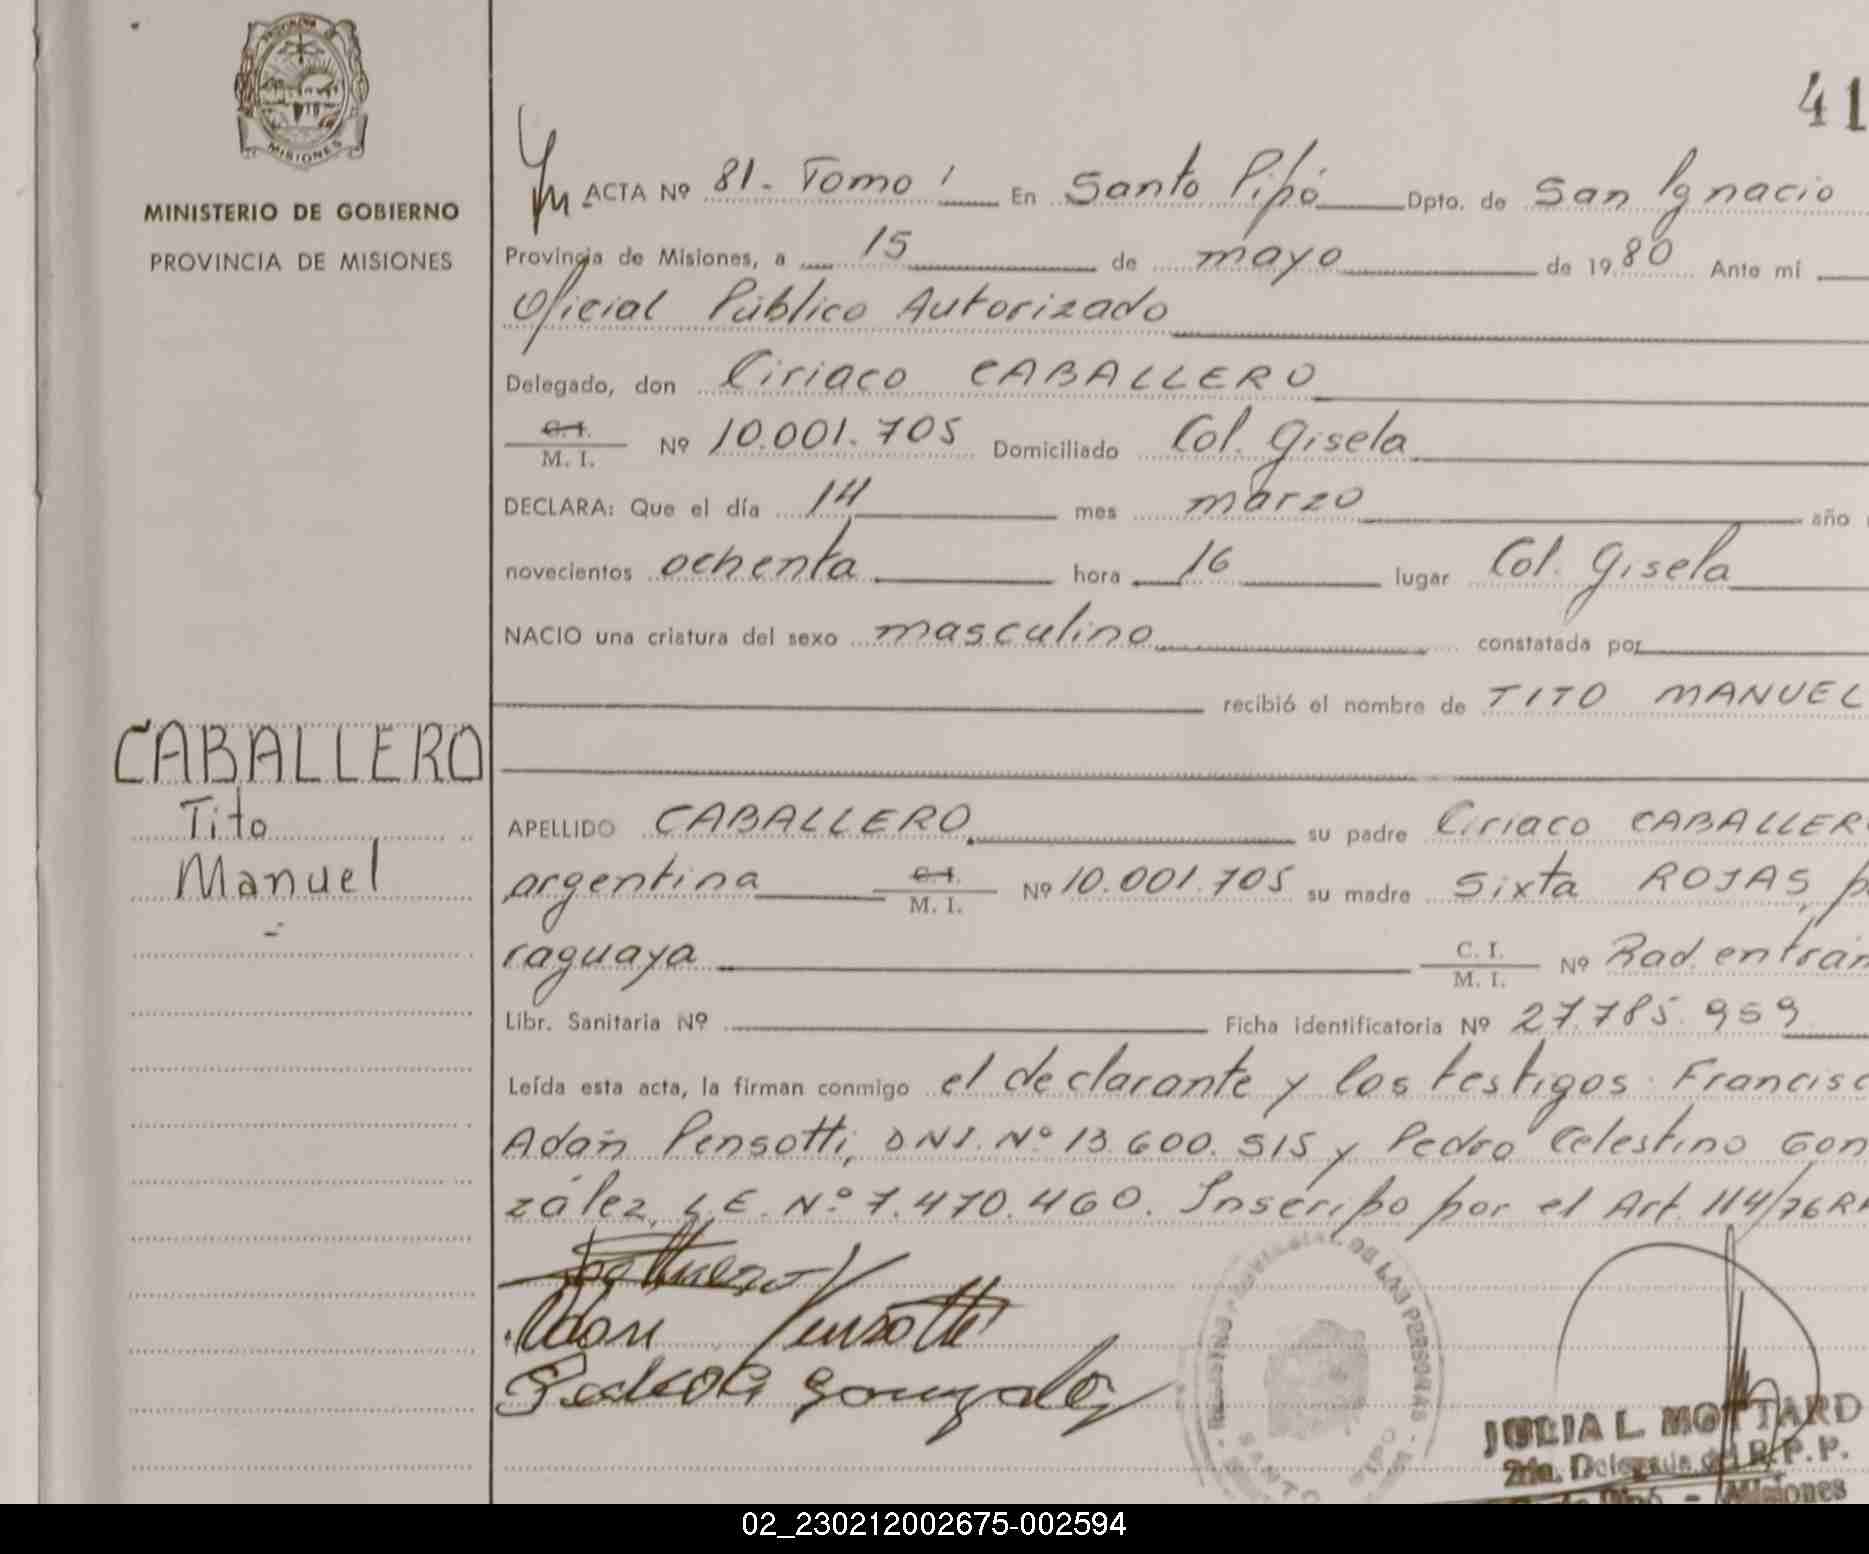 PROVINCIA DE
MISIONES
MINISTERIO DE GOBIERNO
PROVINCIA DE MISIONES
CABALLERO
Tito
Manuel
41
ACTA Nº 81 - Tomo 1 En Santo Pipó Dpto. de San Ignacio
Provincia de Misiones, a 15 de mayo de 1980 Ante mí
Oficial Público Autorizado
Delegado, don Ciriaco CABALLERO
C. I.
M. I. Nº 10.001.705 Domiciliado Col. Gisela
DECLARA: Que el día 14 mes marzo año
novecientos ochenta hora 16 lugar Col. Gisela
NACIO una criatura del sexo masculino constatada por
recibió el nombre de TITO MANUEL
APELLIDO CABALLERO su padre Ciriaco CABALLERO
argentina C. I.
M. I. Nº 10.001.705 su madre Sixta ROJAS, pa
raguaya C. I.
M. I. Nº Rad. en trám
Libr. Sanitaria Nº Ficha identificatoria Nº 27.785.959
Leída esta acta, la firman conmigo el declarante y los testigos: Francisc
Adán Pensotti, DNI. Nº 13.600.515 y Pedro Celestino Gon
zález, L.E. Nº 7.470.460. Inscripto por el Art. 114/76
Adan Pensotti
Pedro C Gonzalez
DE LAS PERSONAS
SANTO PIPO
JULIA L. MOTTARD
2da. Delegada del R.P.P.
Pipó - Misiones
02_230212002675-002594